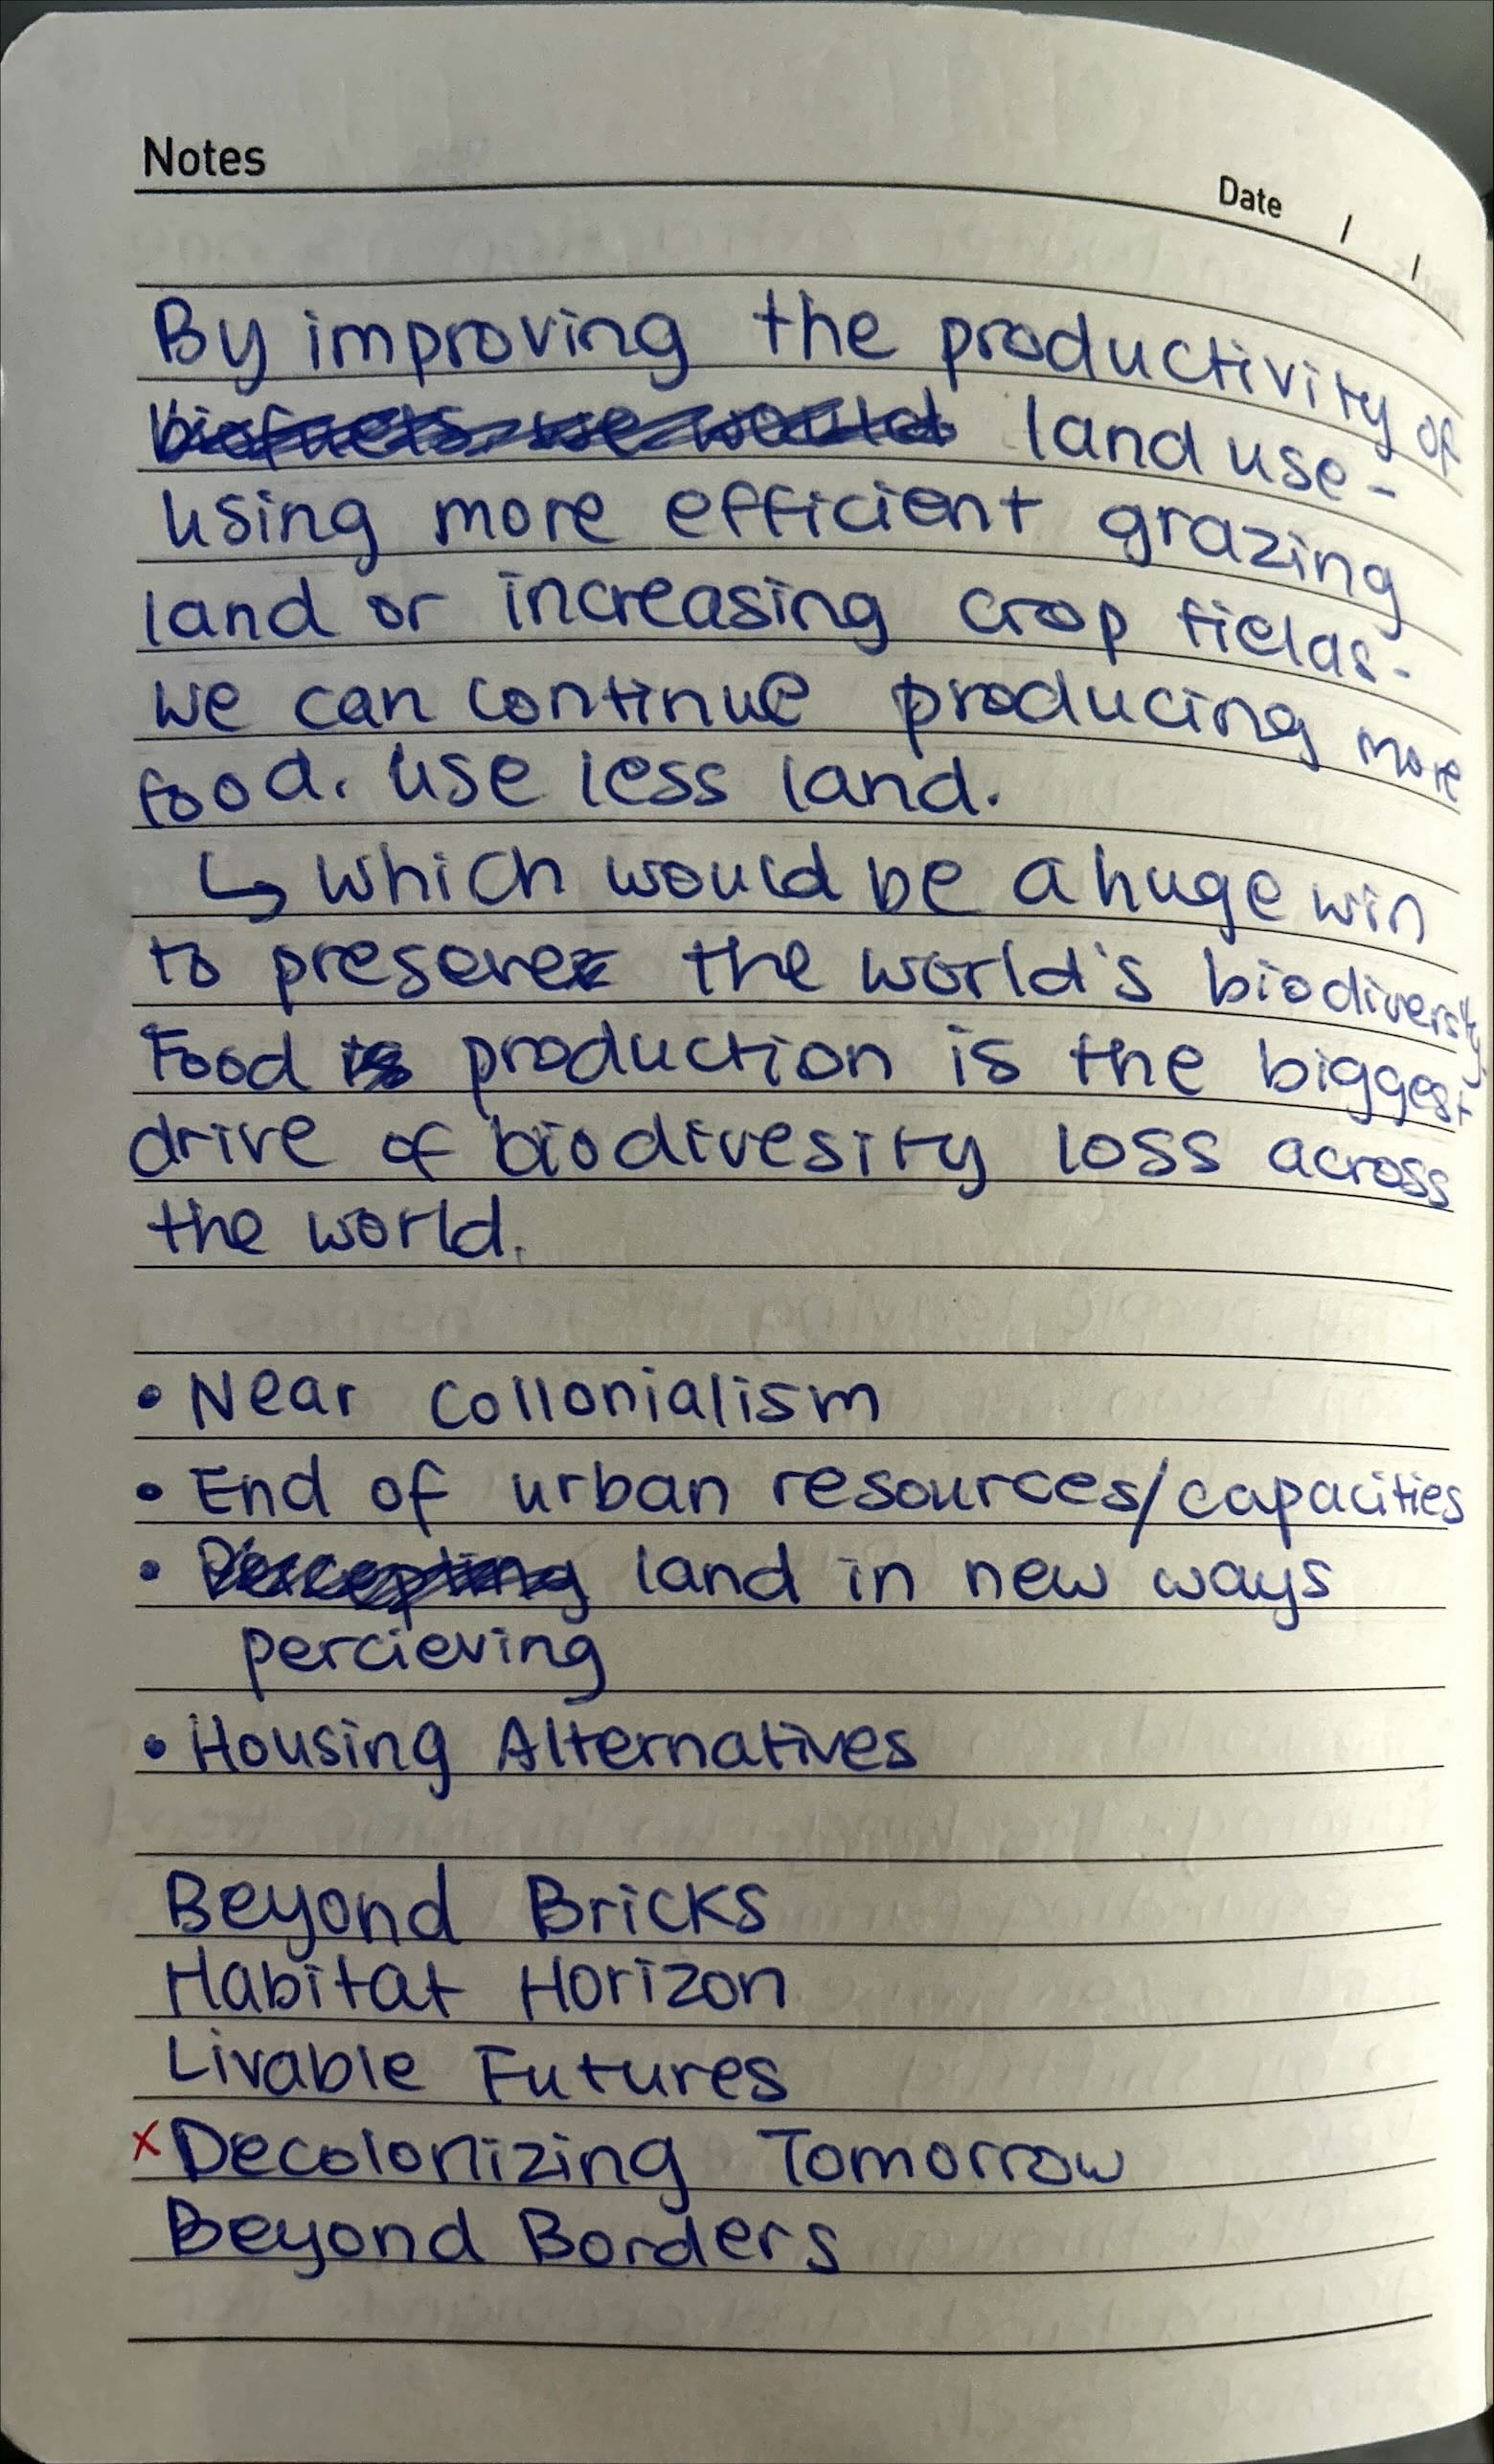 Notes
Date / /
By improving the productivity of
biofuels we would land use -
using more efficient grazing
land or increasing crop fields -
we can continue producing more
food. Use less land.
↳ which would be a huge win
to presere the world's biodiversity.
Food is production is the biggest
drive of biodivesity loss across
the world.
• Near collonialism
• End of urban resources/capacities
• Percepting land in new ways
percieving
• Housing Alternatives
Beyond Bricks
Habitat Horizon
Livable Futures
x Decolonizing Tomorrow
Beyond Borders